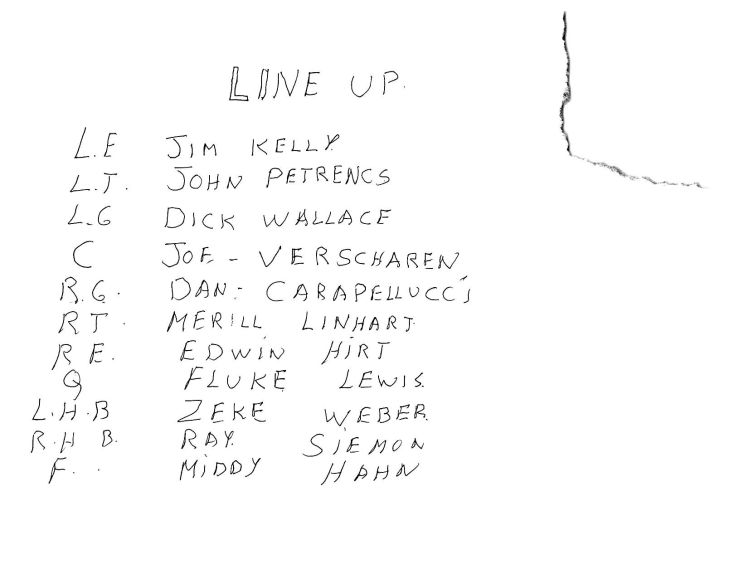 LINE UP.
L.E JIM KELLY
L.T. JOHN PETRENCS
L.G DICK WALLACE
C JOE - VERSCHAREN
R.G. DAN- CARAPELLUCCi
RT. MERILL LINHART.
R E. EDWiN HIRT
Q FLUKE LEWIS.
L.H.B ZEKE WEBER
R.H B. RAY. SIEMON
F. . MiDDY HAHN